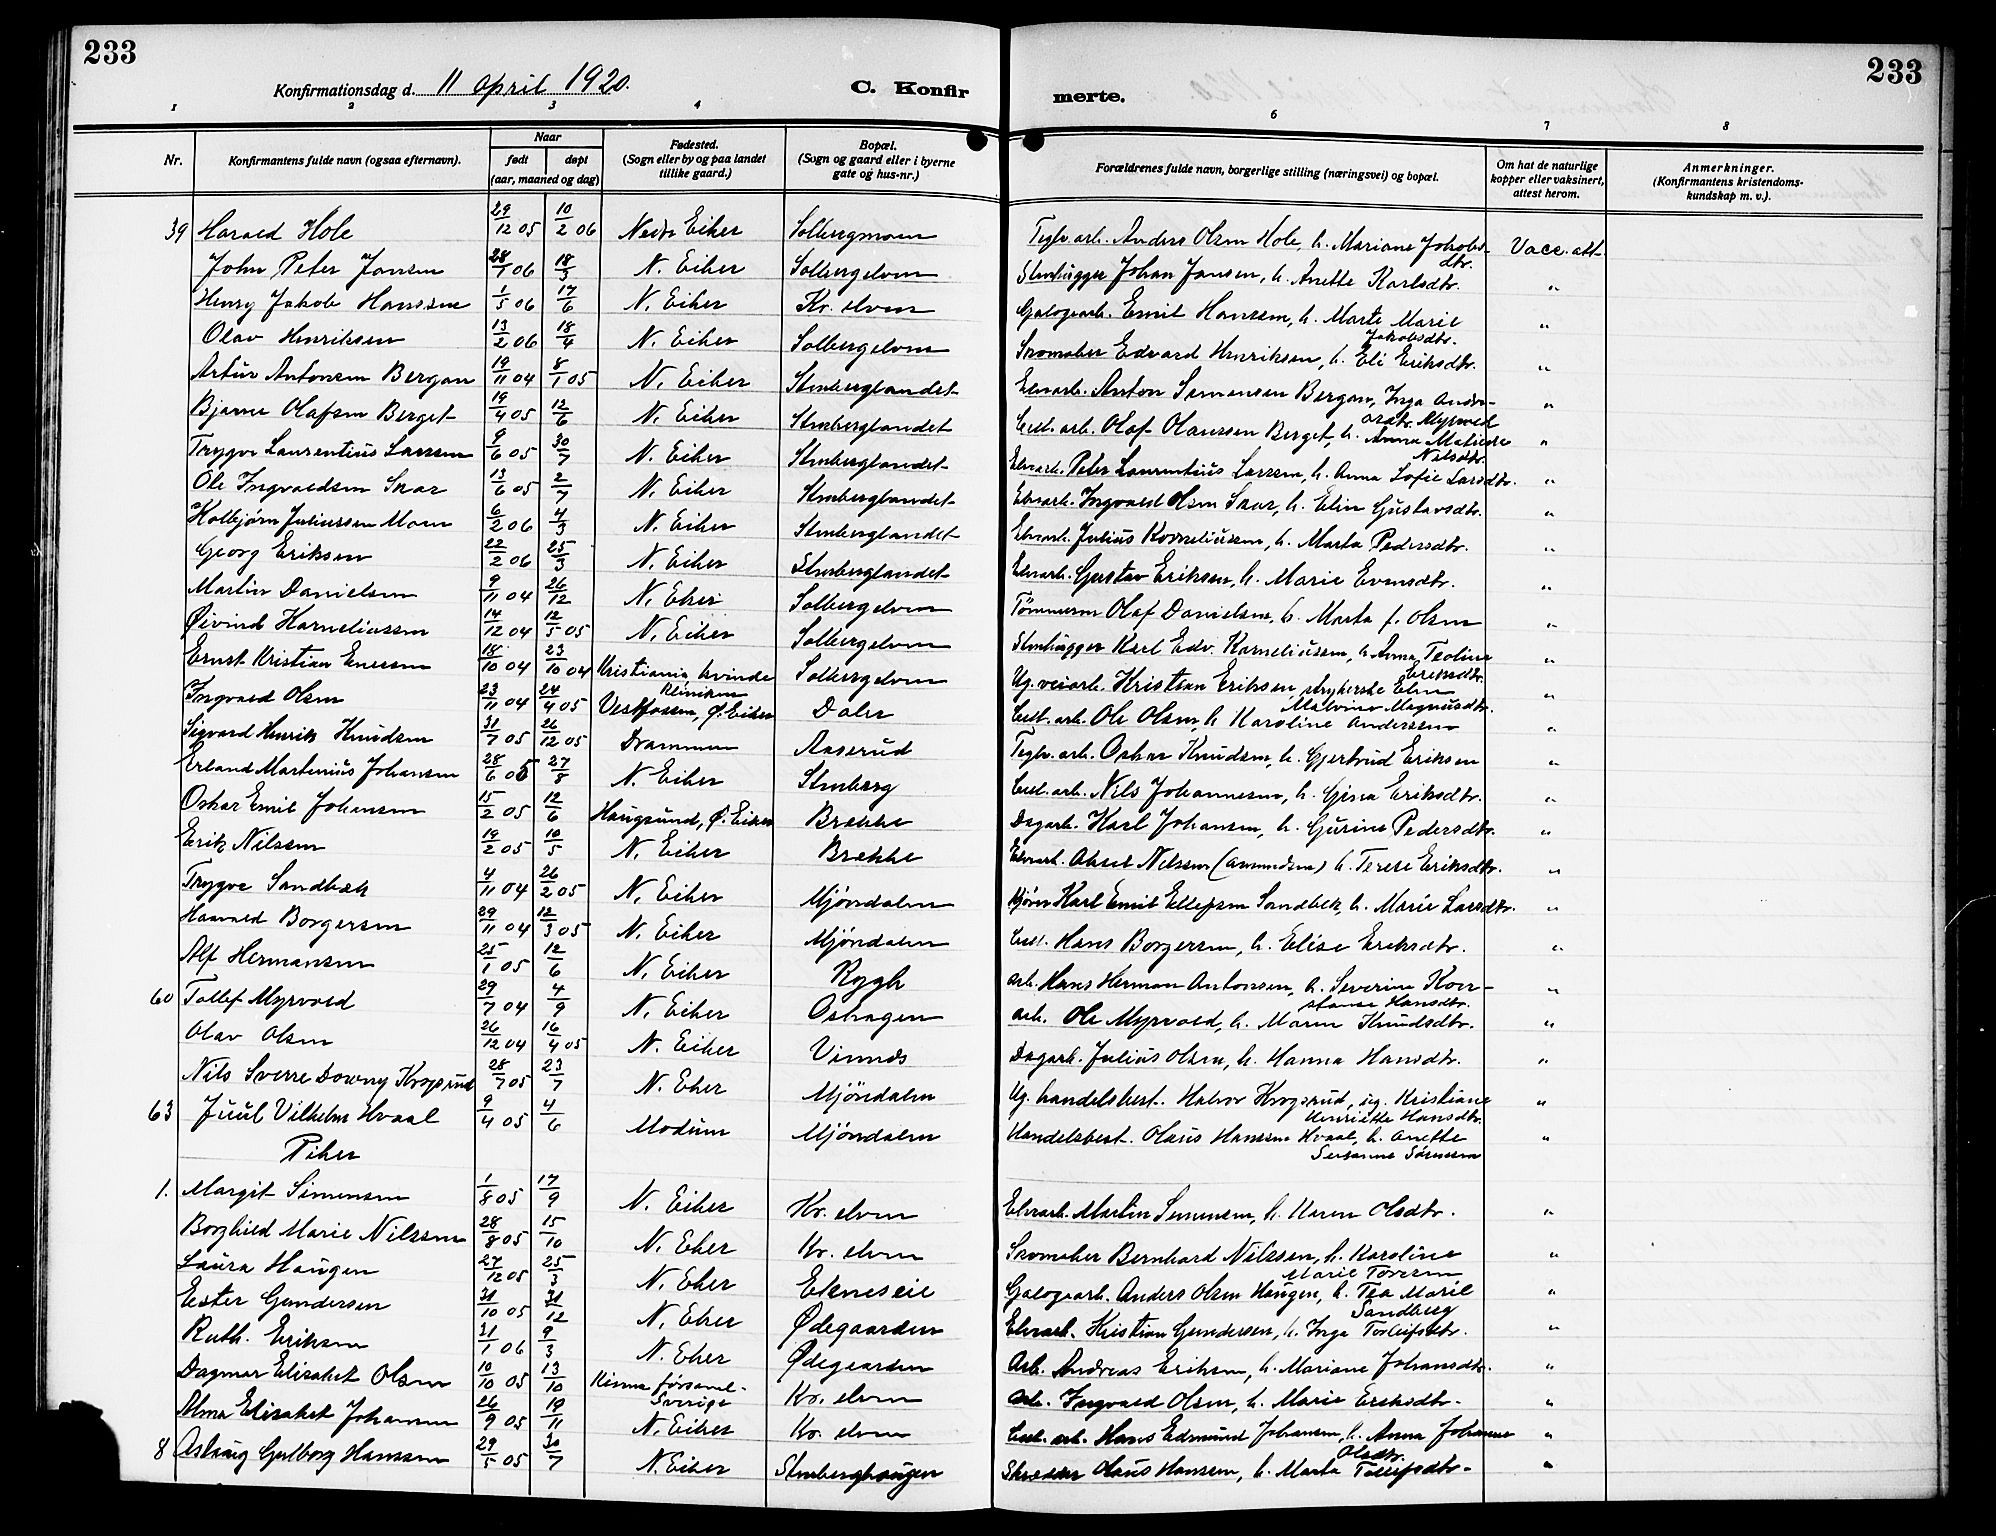 233
233
Konfirmationsdag d. 11 april 1920.
C. Konfirmerte.
1 2 3 4 6 7 8
Nr. Konfirmantens fulde navn (ogsaa efternavn). Naar født døpt (aar, maaned og dag) Fødested. (Sogn eller by og paa landet tillike gaard.) Bopæl. (Sogn og gaard eller i byerne gate og hus-nr.) Forældrenes fulde navn, borgerlige stilling (næringsvei) og bopæl. Om hat de naturlige kopper eller vaksinert, attest herom. Anmerkninger. (Konfirmantens kristendoms-kundskap m. v.).
39 Harald Hole 29/12 05 10/2 06 Nedre Eiker Solbergmoen Teglv. arb. Anders Olsen Hole, h. Mariane Jakobsdtr. Vacc. att.
John Peter Jansen 28/1 06 18/3 N. Eiker Solbergelven Stenhugger Johan Jansen, h. Anette Karlsdtr. "
Henry Jakob Hanssen 1/5 06 17/6 N. Eiker Kr. elven Galogearb. Emil Hanssen, h. Marte Marie Jakobsdtr. "
Olav Henriksen 13/2 06 18/4 N. Eiker Solbergelven Skomaker Edvard Henriksen, h. Eli Eriksdtr. "
Artur Antonsen Bergan 19/11 04 8/1 05 N. Eiker Stenberglandet Elvearb. Anton Simensen Bergan, Inga Andreasdtr. Myrvold "
Bjarne Olafsen Berget 19/4 05 12/6 N. Eiker Stenberglandet Cell. arb. Olaf Olaussen Berget, h. Anna Matilde Nilsdtr. "
Trygve Laurentius Larssen 9/6 05 30/7 N. Eiker Stenberglandet Elvearb. Peter Laurentius Larssen, h. Anna Sofie Larsdtr. "
Ole Ingvaldsen Skar 13/6 05 2/7 N. Eiker Stenberglandet Elvearb. Ingvald Olsen Skar, h. Elin Gustavsdtr. "
Kolbjørn Juliussen Moen 6/2 06 4/3 N. Eiker Stenberglandet Elvearb. Julius Korneliussen, h. Marta Pedersdtr. "
Georg Eriksen 22/2 06 25/3 N. Eiker Stenberglandet Elvearb. Gustav Eriksen, h. Marie Evensdtr. "
Martin Danielsen 9/11 04 26/12 N. Eker Solbergelven Tømmerm Olaf Danielsen, h. Marta f. Olsen "
Øivind Korneliussen 14/12 04 12/5 05 N. Eiker Solbergelven Stenhugger Karl Edv. Korneliussen, h. Anna Teoline Eriksdtr. "
Ernst Kristian Enersen 18/10 04 23/10 04 Kristiania kvindeklinikken Solbergelven Ug. veiarb. Kristian Eriksen, strykerske Elen Malvine Magnusdtr. "
Ingvald Olsen 23/11 04 24/4 05 Vestfossen, Ø. Eiker Daler Cell. arb. Ole Olsen, h. Karoline Anderssen "
Sigvard Henrik Knudsen 31/7 05 26/12 05 Drammen Aaserud Teglv. arb. Oskar Knudsen, h. Gjertrud Eriksen "
Erland Martinius Johansen 28/6 05 27/8 N. Eiker Stenberg Cell. arb. Nils Johannesen, h. Gina Eriksdtr. "
Oskar Emil Johansen 15/2 05 12/6 Haugsund, Ø. Eiker Brekke Dagarb. Karl Johansen, h. Gurine Pedersdtr. "
Erik Nilssen 19/2 05 10/5 N. Eiker Brekke Elvearb. Aksel Nilssen (Amundsen) h. Terese Eriksdtr. "
Trygve Sandbek 4/11 04 26/2 05 N. Eiker Mjøndalen Kjører Karl Emil Ellefsen Sandbek, h. Marie Larsdtr. "
Haavald Borgersen 29/11 04 12/3 05 N. Eiker Mjøndalen Cell. Hans Borgersen, h. Elise Eriksdtr. "
Alf Hermansen 25/1 05 12/6 N. Eiker Rygh arb. Hans Herman Antonsen, h. Severine Konstanse Hansdtr. "
60 Tollef Myrvold 29/7 04 4/9 N. Eiker Oshagen arb. Ole Myrvold, h. Maren Knudsdtr. "
Olav Olsen 26/12 04 16/4 05 N. Eiker Vinnes Dagarb. Julius Olsen, h. Hanna Hansdtr. "
Nils Sverre Downy Krogsrud 28/7 05 23/7 N. Eker Mjøndalen Ug. handelsbest. Halvor Krogsrud, ug. Kristiane Henriette Hansdtr. "
63 Juul Vilhelm Hvaal 9/4 05 4/6 Modum Mjøndalen Handelsbest. Olaus Hanssen Hvaal, h. Anette Susanne Sørensen "
Piker
1. Margit Simensen 1/8 05 17/9 N. Eiker Kr. elven Elvearb. Martin Simensen, h. Karen Olsdtr. "
Borghild Marie Nilssen 28/8 05 15/10 N. Eker Kr. elven Skomaker Bernhard Nilssen, h. Karoline Marie Toresen "
Laura Haugen 27/12 05 25/3 N. Eker Ekneseie Galogearb. Anders Olsen Haugen, h. Tea Marie Sandberg "
Ester Gundersen 31/10 05 31/12 N. Eker Ødegaarden Elvearb. Kristian Gundersen, h. Inga Torleifsdtr. "
Ruth. Eriksen 31/1 06 9/3 N. Eker Ødegaarden Arb. Andreas Eriksen, h. Mariane Johansdtr. "
Dagmar Elisabet Olsen 10/10 05 13/10 Sverige Kr. elven Arb. Ingvald Olsen, h. Marie Eriksdtr. "
Alma Elisabet Johansen 26/9 05 19/11 N. Eiker Kr. elven Cell. arb. Hans Edmund Johansen, h. Anna Johanne Olsdtr. "
8 Aslaug Gulborg Hanssen 29/5 05 30/7 N. Eiker Stenberghaugen Skrædder Olaus Hanssen, h. Marta Tollefsdtr. "